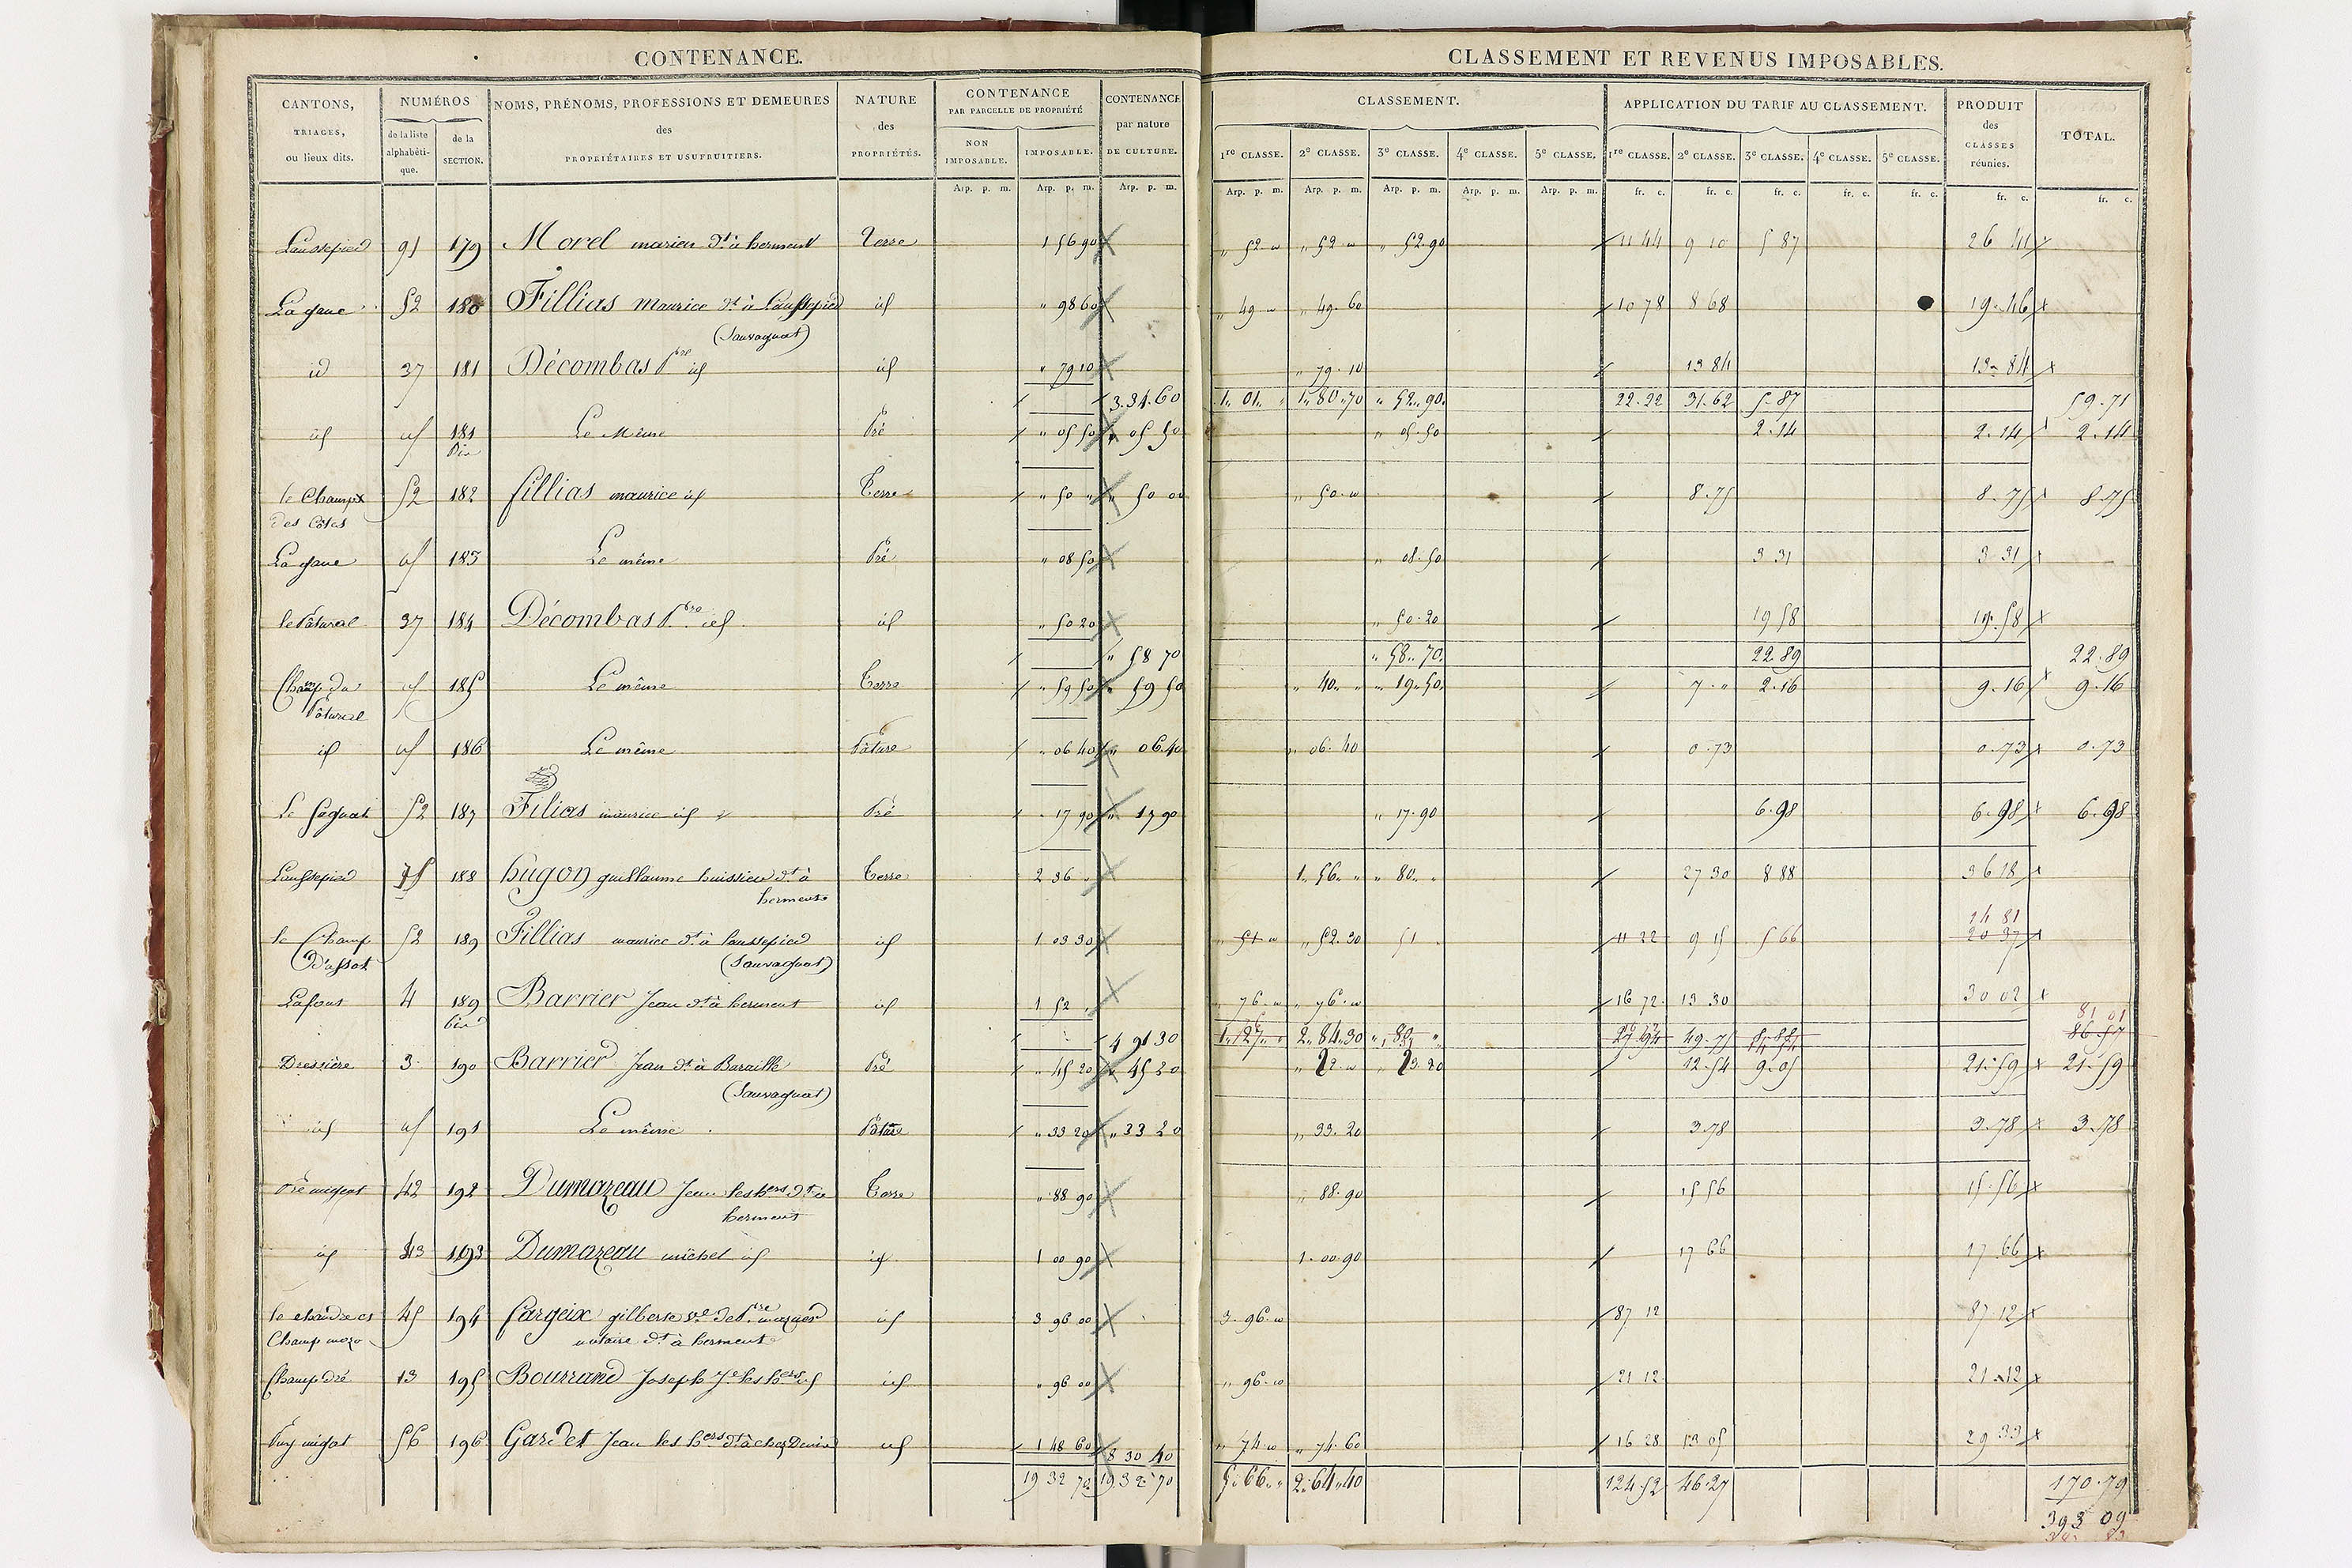 CONTENANCE.
CANTONS, TRIAGES, ou lieux dits.
NUMÉROS de la liste alphabétique. de la SECTION.
NOMS, PRÉNOMS, PROFESSIONS ET DEMEURES des PROPRIÉTAIRES ET USUFRUITIERS.
NATURE des PROPRIÉTÉS.
CONTENANCE PAR PARCELLE DE PROPRIÉTÉ NON IMPOSABLE. IMPOSABLE.
CONTENANCE par nature DE CULTURE.
Arp. p. m. Arp. p. m. Arp. p. m.
CLASSEMENT ET REVENUS IMPOSABLES.
CLASSEMENT.
1re CLASSE. 2e CLASSE. 3e CLASSE. 4e CLASSE. 5e CLASSE.
APPLICATION DU TARIF AU CLASSEMENT.
1re CLASSE. 2e CLASSE. 3e CLASSE. 4e CLASSE. 5e CLASSE.
PRODUIT des CLASSES réunies.
TOTAL.
Arp. p. m. Arp. p. m. Arp. p. m. Arp. p. m. Arp. p. m. fr. c. fr. c. fr. c. fr. c. fr. c. fr. c. fr. c.
Laussepied 91 179 Morel marien dt à herment Terre 1 56 90 " 52 " " 52 " " 52.90 11 44 9 10 5 87 26 41
La gane 52 180 Fillias maurice dt à Laussepied id " 98 60 " 49 " " 49.60 10 78 8 68 19.46
(Sauvagnat)
id 37 181 Décombas Pre id id " 79 10 " 79.10 13 84 13.84
3.34.60 1.01. " 1.80.70 " 52.90 22.22 31.62 5.87 59.71
id id 181 bis Le Même Pré " 05 50 " 05 50 " 05.50 2.14 2.14 2.14
le Champ des Côtes 52 182 fillias maurice id Terre " 50 " " 50 00 " 50. 8.75 8.75 8.75
La gane id 183 Le même Pré " 08 50 " 08.50 3 31 3 31
le Pâtural 37 184 Décombas Pre id id " 50 20 " 50.20 19 58 19.58
" 58 70 " 58.70 22.89 22.89
Champ du Pâtural id 185 Le même Terre " 59 50 " 59 50 " 40. " " 19.50 7. " 2.16 9.16 9.16
id id 186 Le même Pâture " 06 40 " 06 40 " 06.40 0.73 0.73 0.73
Le 52 187 Filias maurice id Pré " 17 90 " 17 90 " 17.90 6.98 6.98 6.98
Laussepied 75 188 hugon guillaume huissier dt à Terre 2 36 . 1.56. " " 80. " 27 30 8 88 36 18
herment
le Champ 52 189 Fillias maurice dt à laussepied id 1 03 30 " 51 " " 52.30 51 11 22 9 15 5 66 14 81 20 37
(Sauvagnat)
Lafont 4 189 bis Barrier Jean dt à herment id 1 52 . " 76 " " 76 " 16 72 13 30 30 02
4 91 30 1.27. " 2.84.30 " 80 " 27.94 49.75 81 01
Dressière 3 190 Barrier Jean dt à Baraille Pré " 45 20 " 45 20 " 22 " " 23.20 12.54 9.05 21.59 21.59
(Sauvagnat)
id id 191 Le même Pâture " 33 20 " 33 20 " 33.20 3.78 3.78 3.78
42 192 Dumazeau Jean les hers dt à Terre " 88 90 " 88.90 15 56 15.56
herment
id 43 193 Dumazeau michel id id 1 00 90 1.00.90 17 66 17 66
45 194 fargeix gilberte ve de Pre id 3 96 00 3.96 " 87 12 87.12
notaire dt à herment
Champ 13 195 Bourrand Joseph Je les hers id id " 96 00 " 96 " 21 12 21.12
Puy 56 196 Gardet Jean les hers dt à chez id 1 48 60 8 30 40 " 74 " " 74.60 16 28 13 05 29 33
19 32 70 19 32 70 5.66. " 2.64.40 124.52 46.27 170.79
393 09